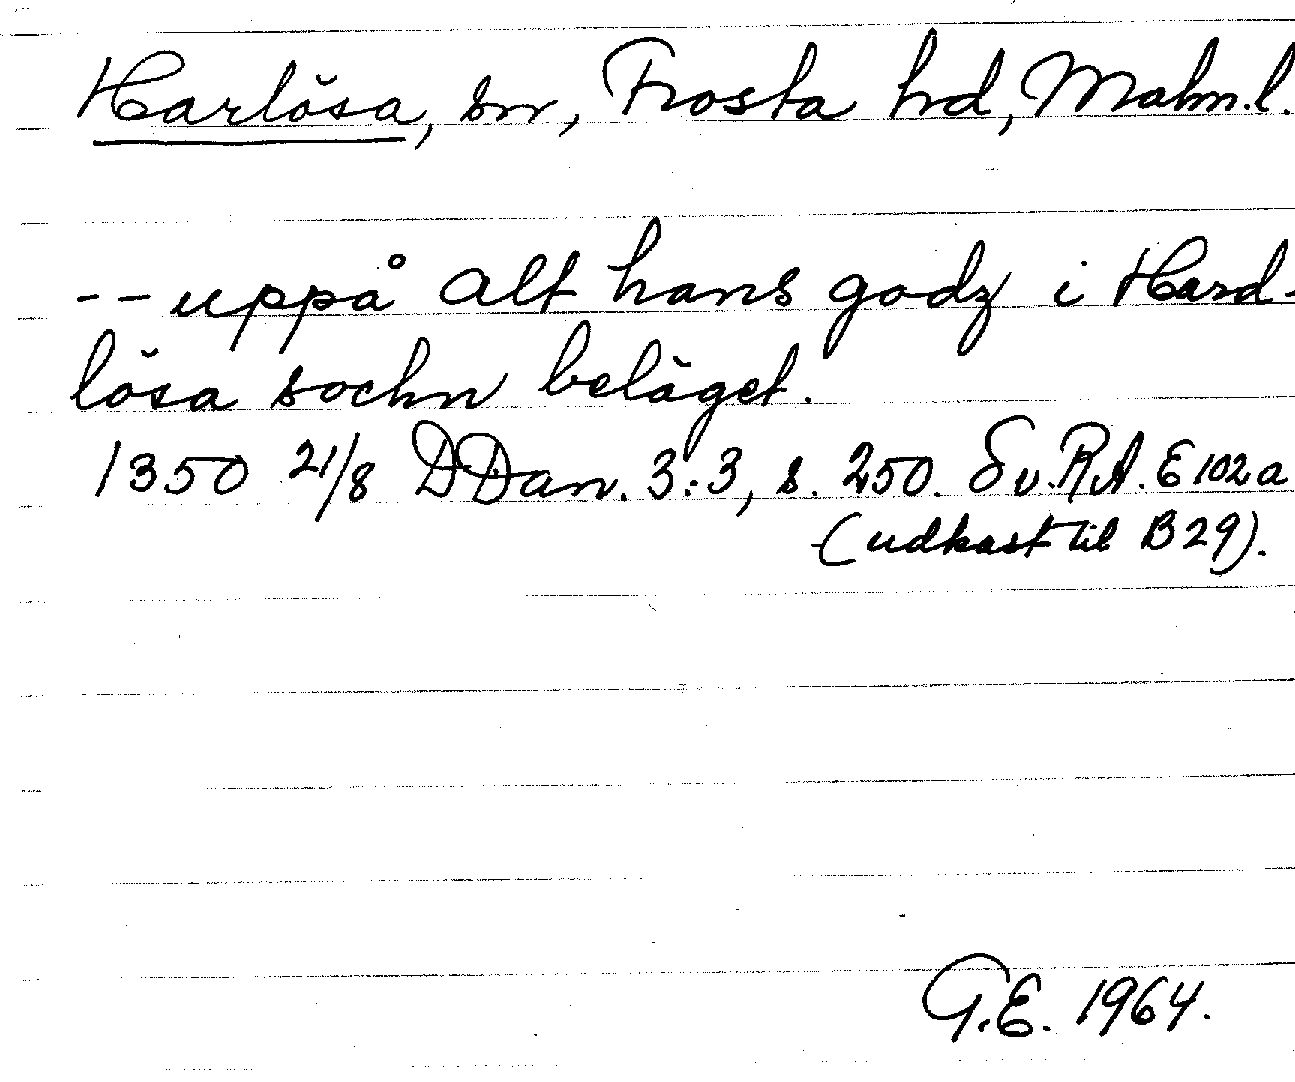 Harlösa, sn, Frosta hd, Malm.l.
-- uppå alt hans godz i Hard-
lösa sochn beläget.
1350 21/8 DDan. 3:3, s. 250. Sv.RA. E 102a
(udkast til B 29).
G.E. 1964.